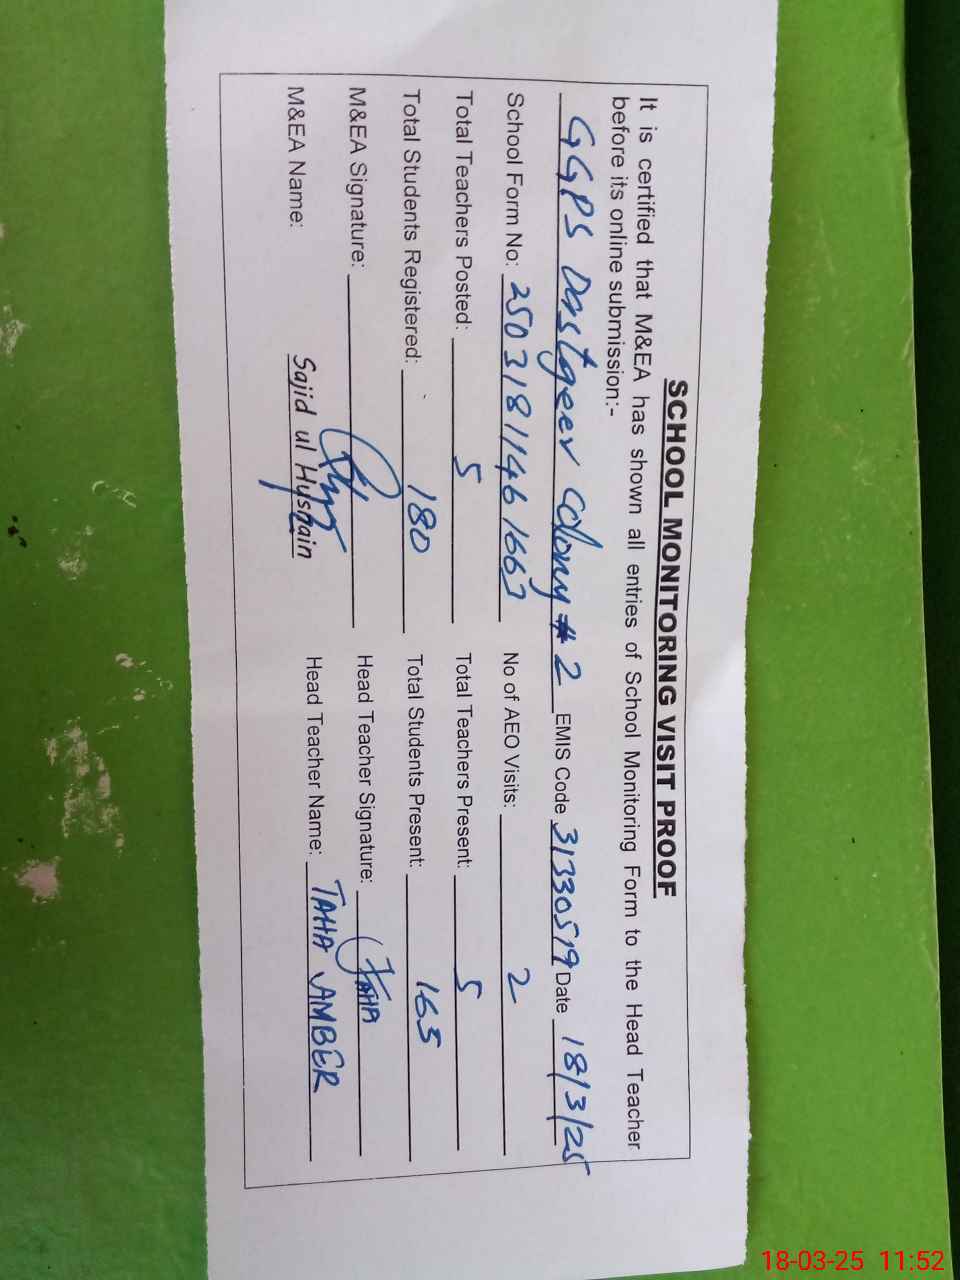 SCHOOL MONITORING VISIT PROOF
It is certified that M&EA has shown all entries of School Monitoring Form to the Head Teacher
before its online submission:-
GGPS Dastgeer Colony # 2 EMIS Code 31330519 Date 18/3/25
School Form No: 2503181146 1663 No of AEO Visits: 2
Total Teachers Posted: 5 Total Teachers Present: 5
Total Students Registered: 180 Total Students Present: 165
M&EA Signature: Head Teacher Signature: TAHA
M&EA Name: Sajid ul Hysnain Head Teacher Name: TAHA AMBER
18-03-25 11:52